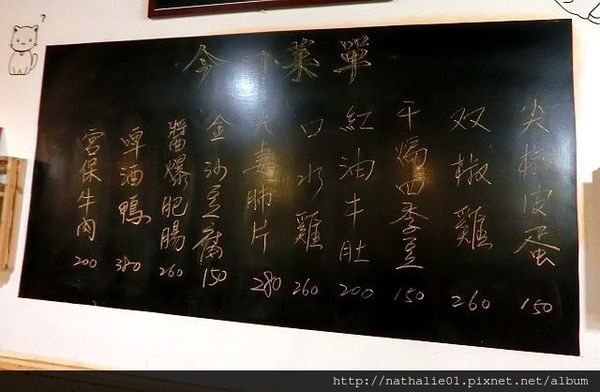 今日菜單
尖椒皮蛋 150
双椒雞 260
干煸四季豆 150
紅油牛肚 200
口水雞 260
夫妻肺片 280
金沙豆腐 150
醬爆肥腸 260
啤酒鴨 380
宮保牛肉 200
?
http://nathalie01.pixnet.net/album